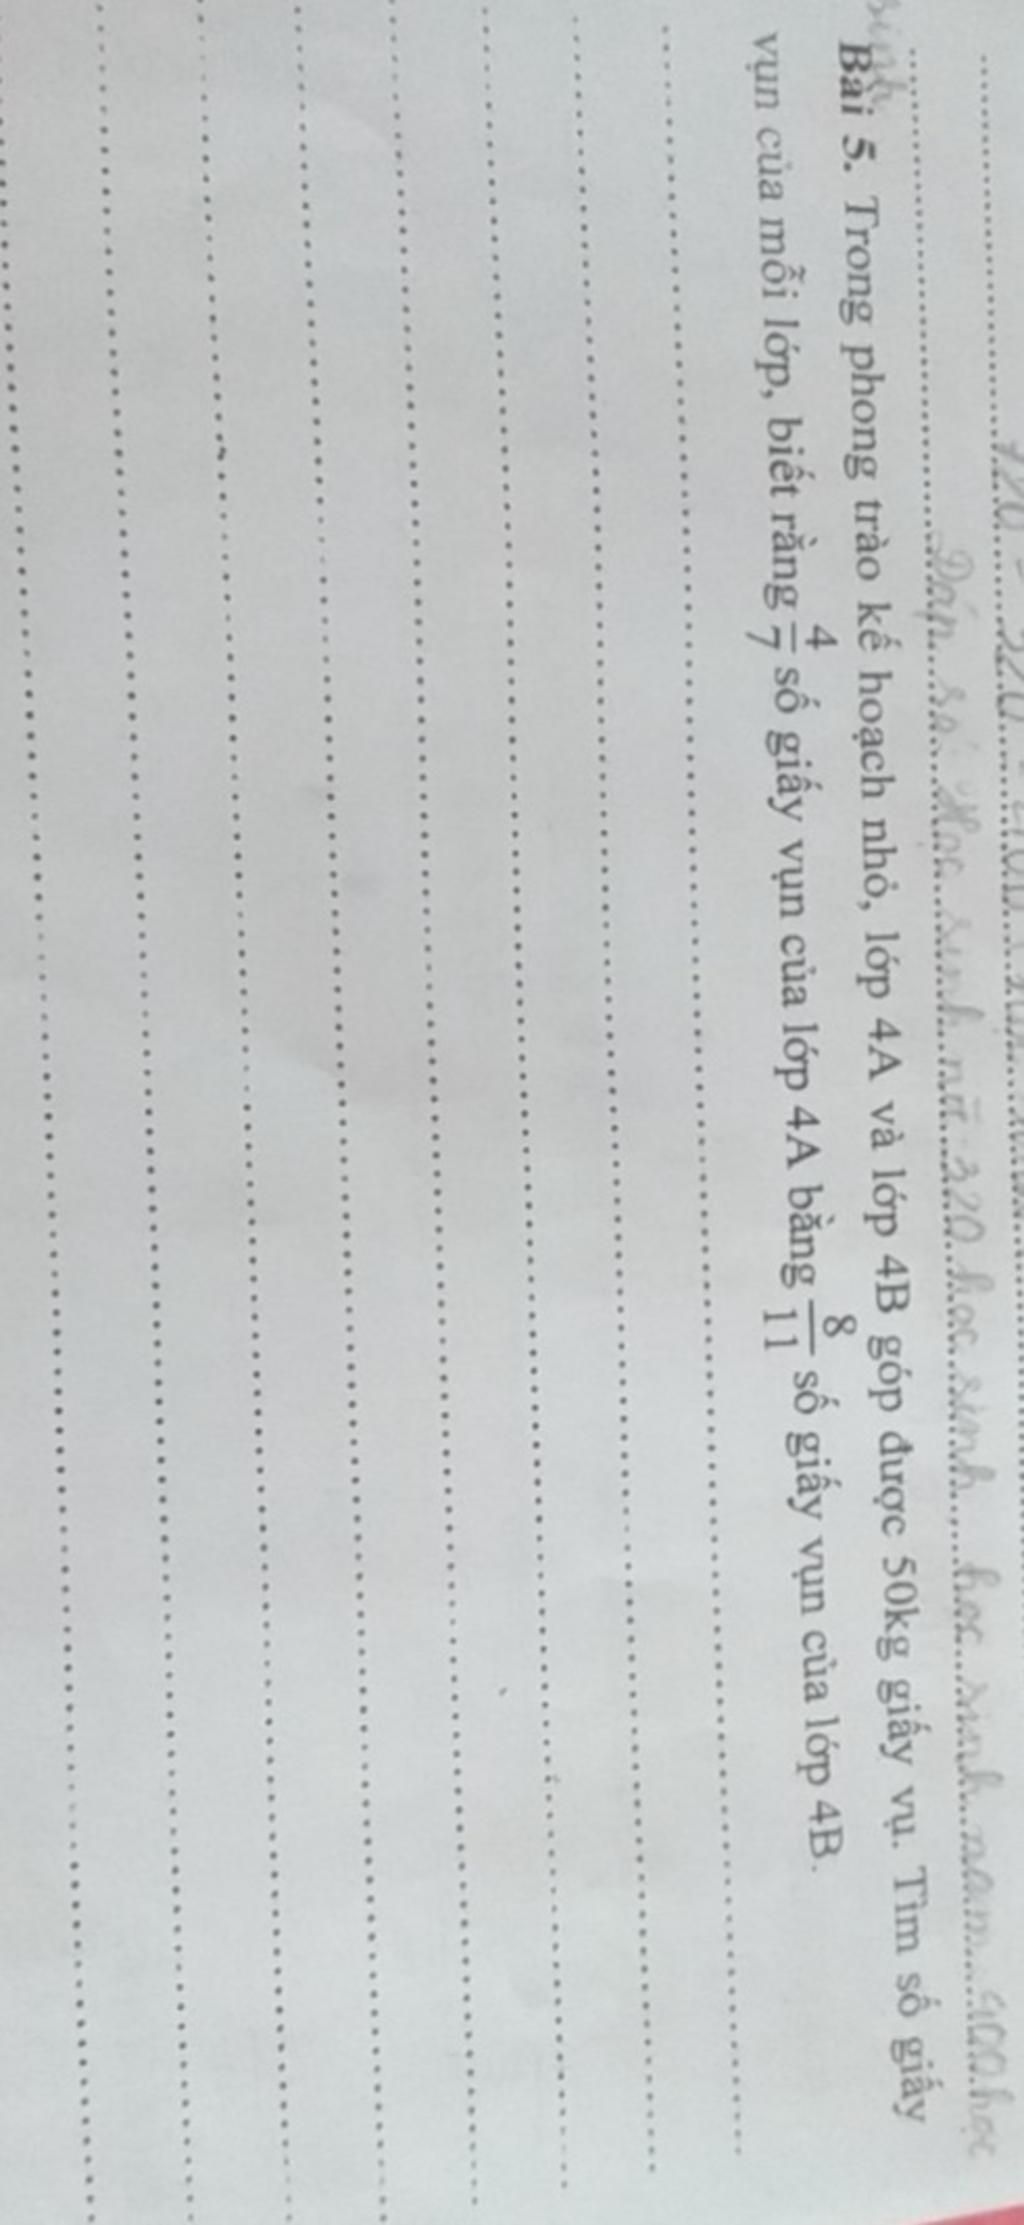 720 - 320 = 400
Đáp số: Học sinh nữ: 320 học sinh, học sinh nam: 400 học
sinh
Bài 5. Trong phong trào kế hoạch nhỏ, lớp 4A và lớp 4B góp được 50kg giấy vụ. Tìm số giấy
vụn của mỗi lớp, biết rằng 4/7 số giấy vụn của lớp 4A bằng 8/11 số giấy vụn của lớp 4B.